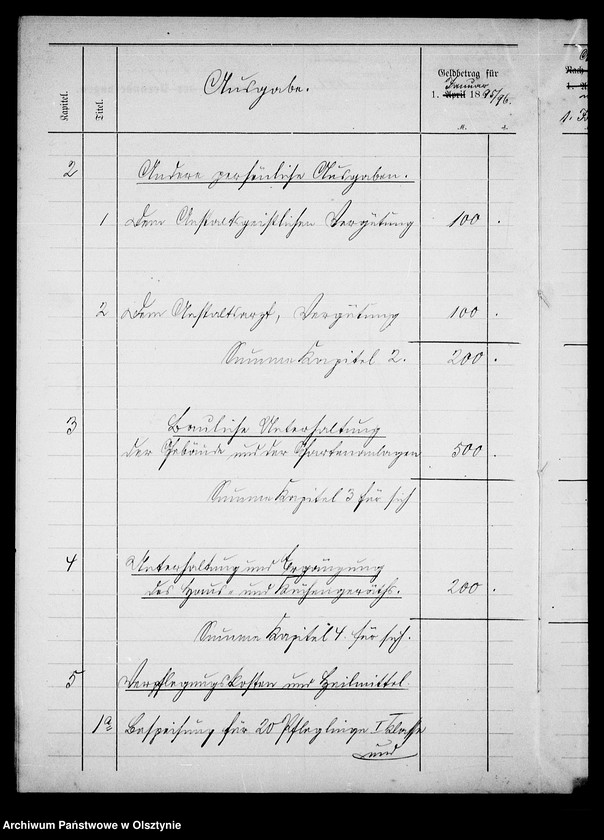 Kapitel. Titel. Ausgabe. Geldbetrag für
Januar
1. April 1895/96.
M. A.
2 Andere persönliche Ausgaben.
1 Dem Anstaltsgeistlichen Vergütung 100 .
2 Dem Anstaltsarzt, Vergütung 100 .
Summe Kapitel 2. 200 .
3 Bauliche Unterhaltung
der Gebäude und der Gartenanlagen 500 .
Summe Kapitel 3 für sich
4 Unterhaltung und Ergänzung
des Haus- und Küchengeräths. 200 .
Summe Kapitel 4 für sich.
5 Verpflegungskosten und Heilmittel.
1a Bespeisung für 20 Pfleglinge I Klasse
und
Nach
1.
Archiwum Państwowe w Olsztynie